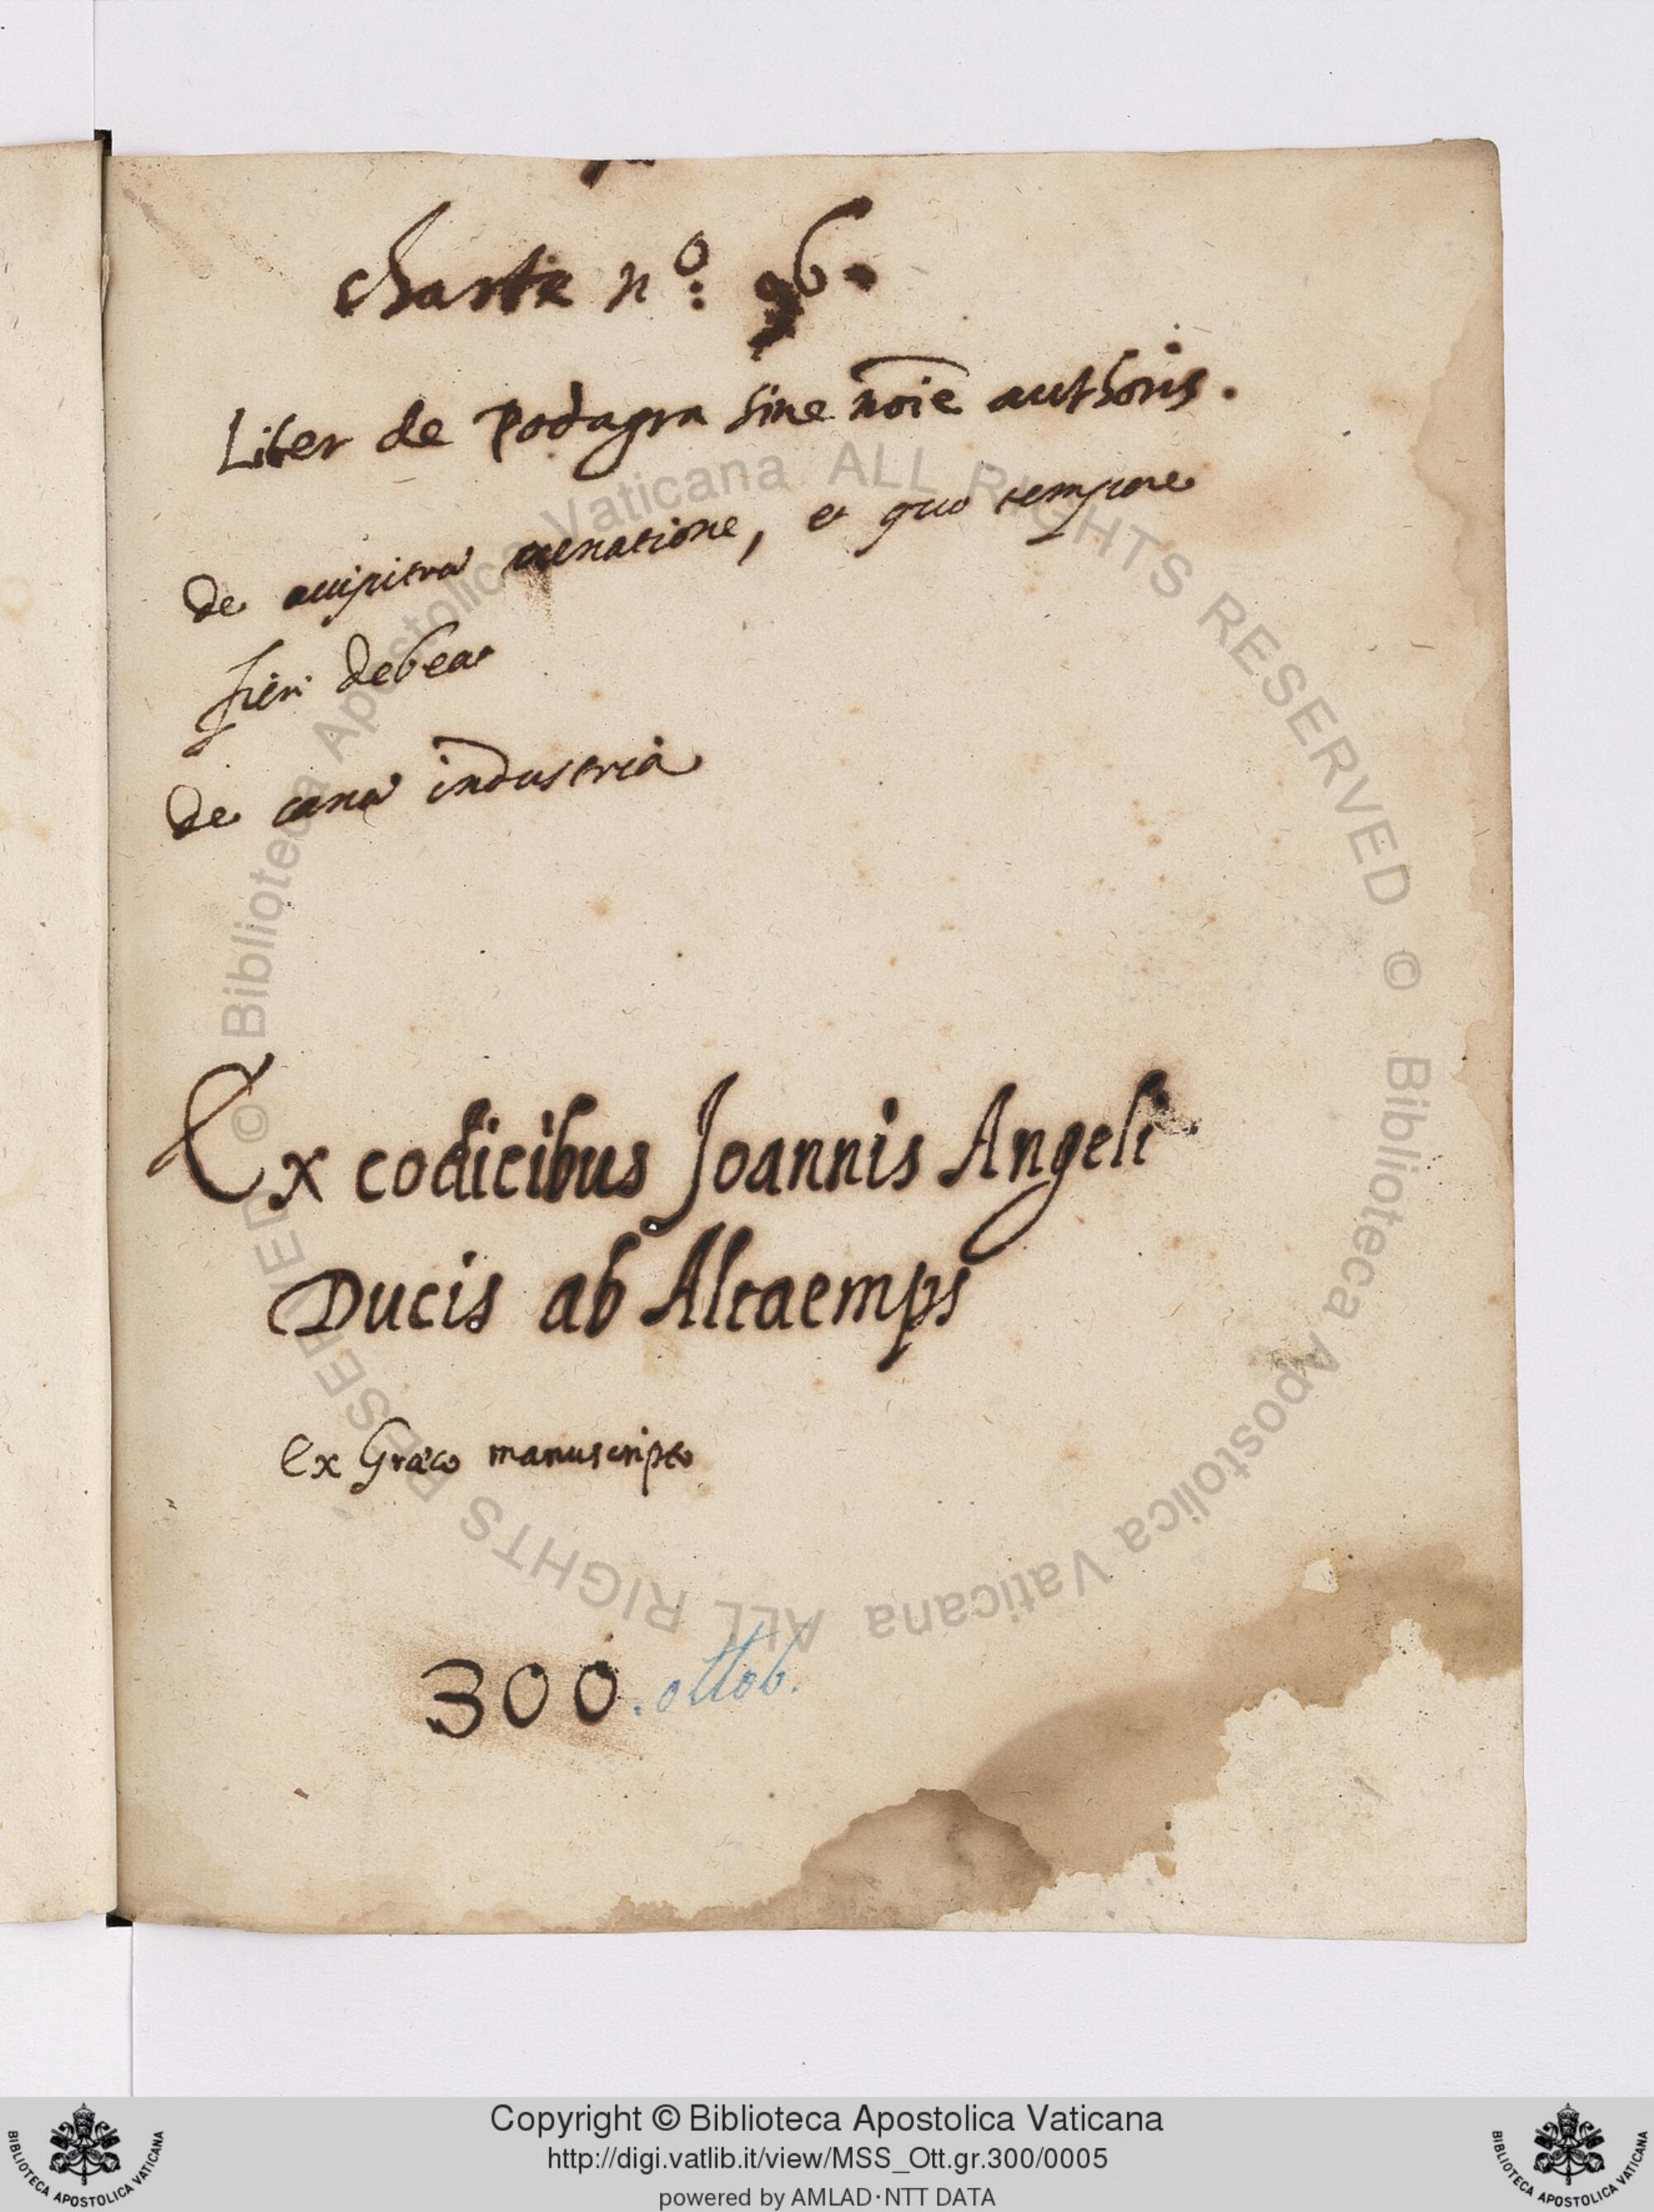 Charte nº: 96.
Liber de Podagra sine noīe authoris.
De accipitrū uenatione, et quo tempore
fieri debeat
De canū industria
Ex codicibus Joannis Angeli
Ducis ab Altaemps
Ex Græco manuscripto
300. ottob.
© Biblioteca Apostolica Vaticana ALL RIGHTS RESERVED © Biblioteca Apostolica Vaticana ALL RIGHTS RESERVED
Copyright © Biblioteca Apostolica Vaticana
http://digi.vatlib.it/view/MSS_Ott.gr.300/0005
powered by AMLAD·NTT DATA
BIBLIOTECA APOSTOLICA VATICANA
BIBLIOTECA APOSTOLICA VATICANA